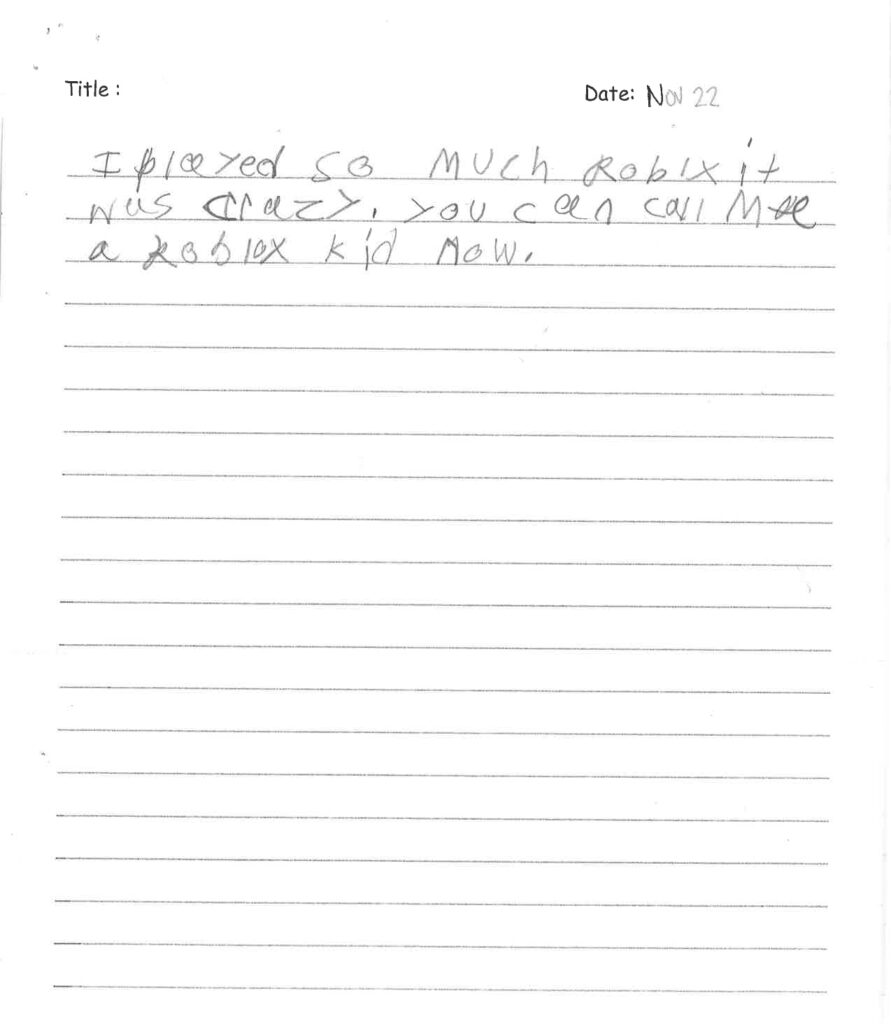 Title :
Date: Nov 22
I played so much Roblx it
was crazy. you can call me
a Roblox kid now.